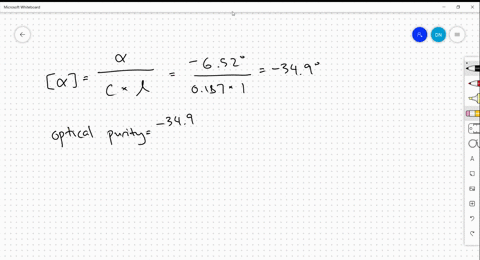 Microsoft Whiteboard
DN
[α] = α / C * l = -6.52° / 0.187 * 1 = -34.9°
optical purity = -34.9